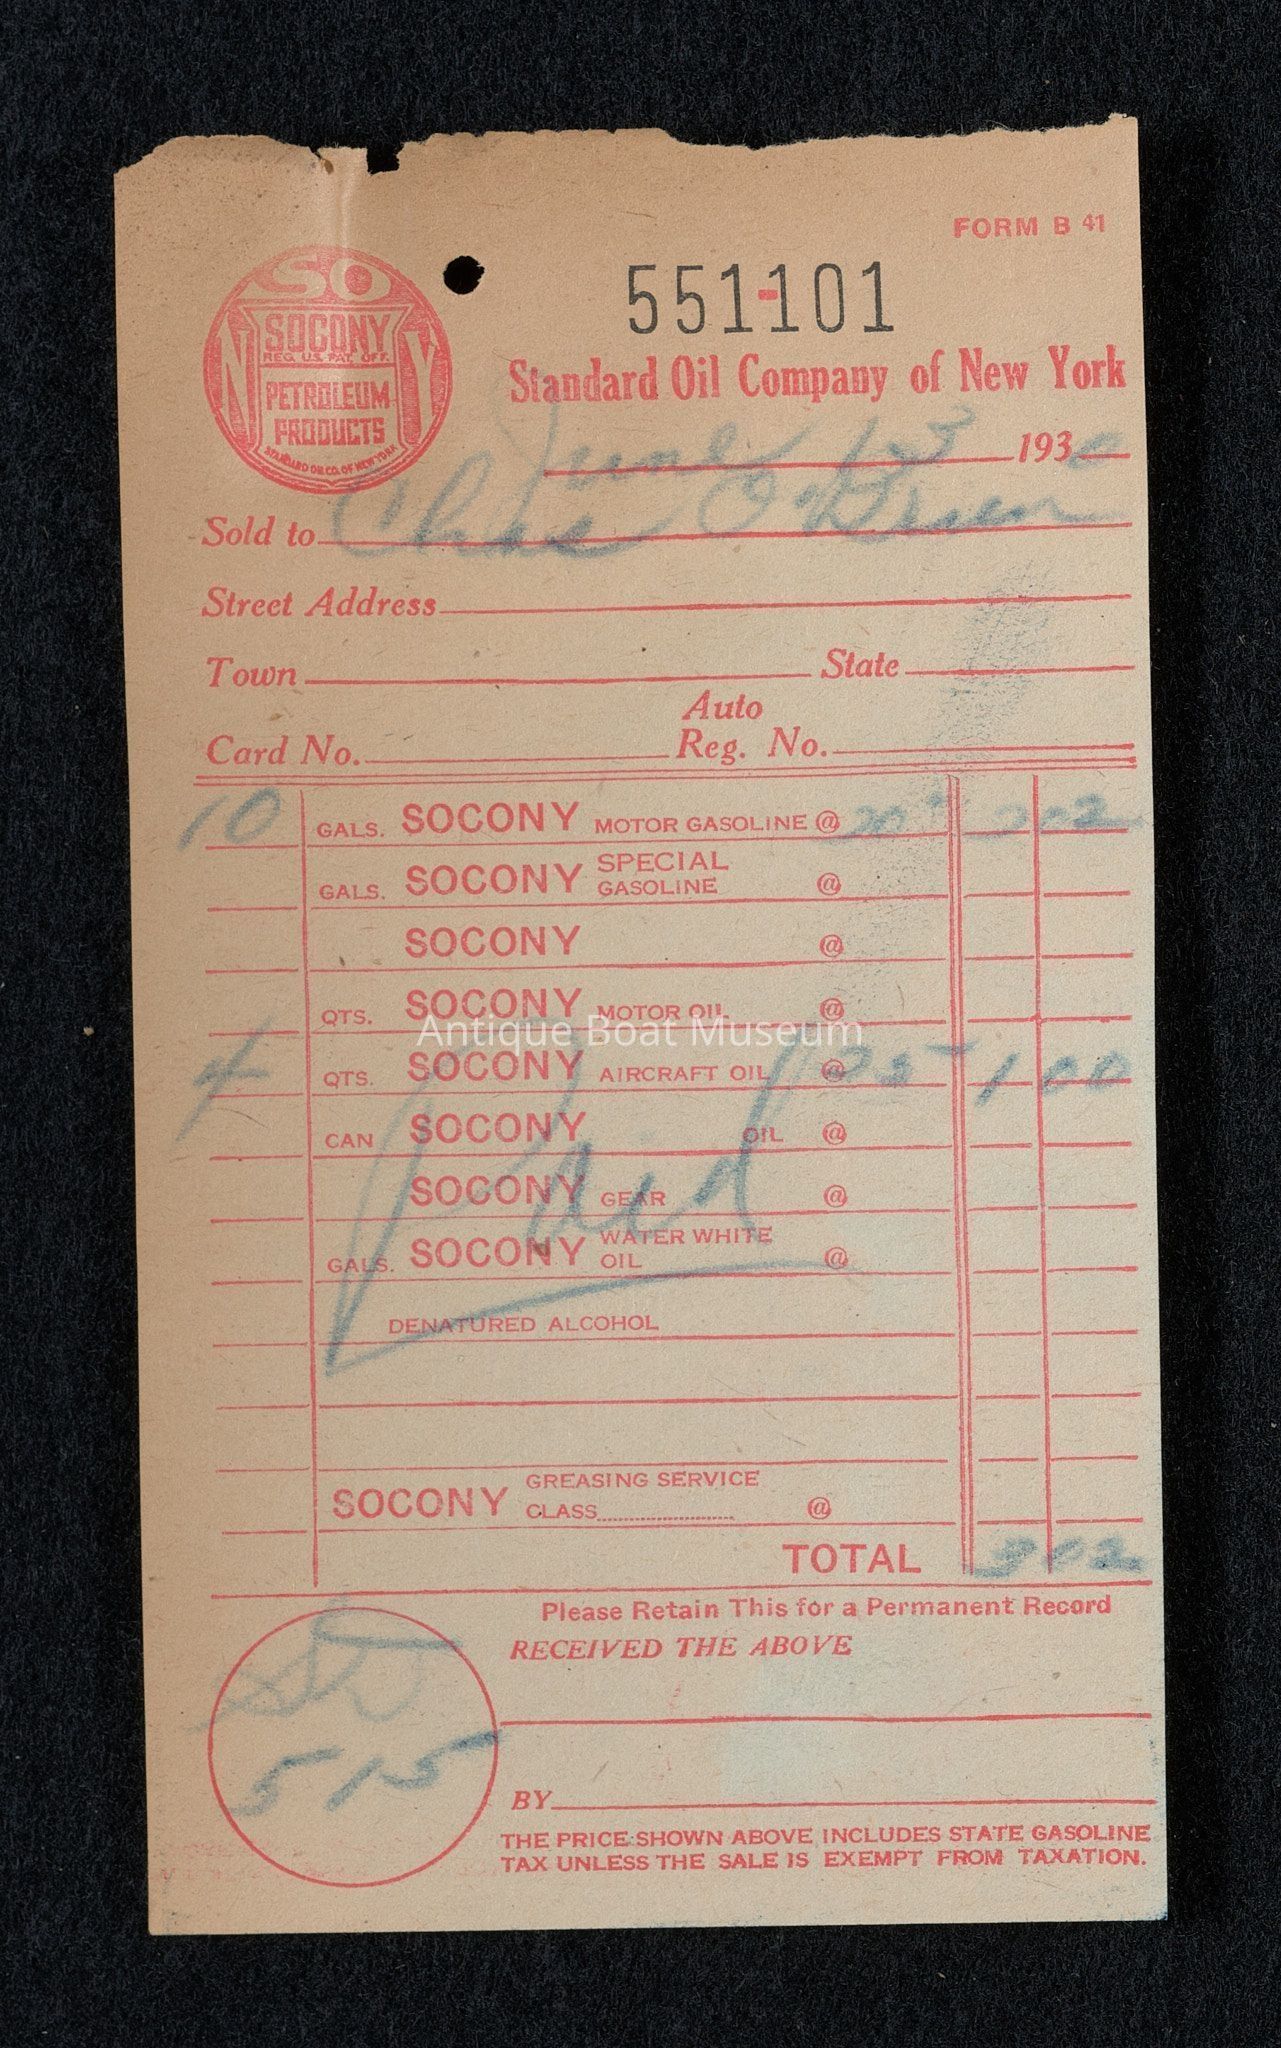 FORM B 41
551-101
SO
NY
SOCONY
REG. U.S. PAT. OFF.
PETROLEUM
PRODUCTS
STANDARD OIL CO. OF NEW YORK
Standard Oil Company of New York
June 1930
Sold to Chas O'Brien
Street Address
Town State
Auto
Card No. Reg. No.
10 GALS. SOCONY MOTOR GASOLINE @ 20 2 02
GALS. SOCONY SPECIAL GASOLINE @
SOCONY @
QTS. SOCONY MOTOR OIL @
Antique Boat Museum
4 QTS. SOCONY AIRCRAFT OIL @ 25 1 00
CAN SOCONY OIL @
Paid
SOCONY GEAR @
GALS. SOCONY WATER WHITE OIL @
DENATURED ALCOHOL
SOCONY GREASING SERVICE
CLASS @
TOTAL 3 02
Please Retain This for a Permanent Record
RECEIVED THE ABOVE
515
BY
THE PRICE SHOWN ABOVE INCLUDES STATE GASOLINE
TAX UNLESS THE SALE IS EXEMPT FROM TAXATION.